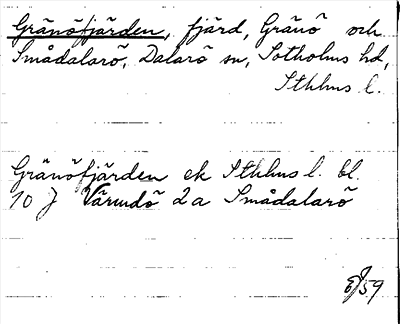 Gränöfjärden, fjärd, Gränö och
Smådalarö, Dalarö sn, Sotholms hd,
Sthlms l.
Gränöfjärden ek Sthlms l. bl.
10 J Värmdö 2a Smådalarö
59